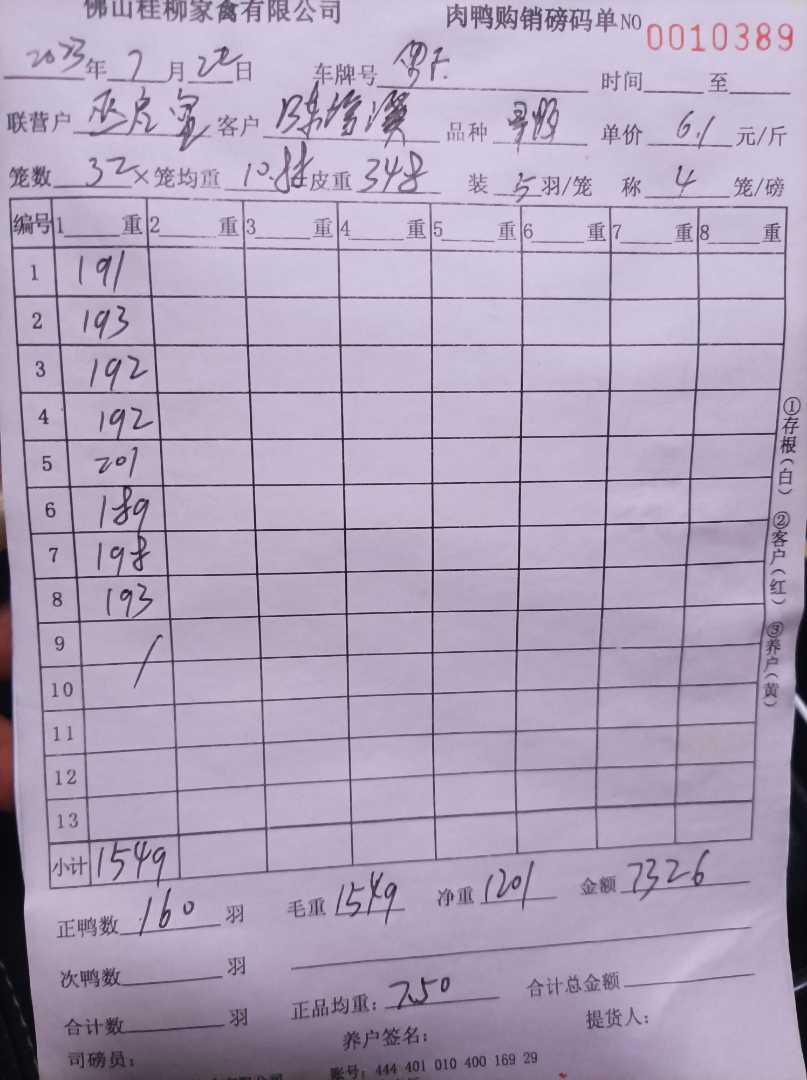 佛山桂柳家禽有限公司 肉鸭购销磅码单 NO 0010389
2023年7月22日 车牌号 时间 至
联营户 客户 品种 单价 6.1 元/斤
笼数 32 × 笼均重 10.88 皮重 348 装 5 羽/笼 称 4 笼/磅
编号 1 重 2 重 3 重 4 重 5 重 6 重 7 重 8 重
1 191
2 193
3 192
4 192
5 201
6 189
7 198
8 193
9
10
11
12
13
小计 1549
正鸭数 160 羽 毛重 1549 净重 1201 金额 7326
次鸭数 羽
合计数 羽 正品均重: 7.50 合计总金额
司磅员: 养户签名: 提货人:
账号: 444 401 010 400 169 29
①存根(白) ②客户(红) ③养户(黄)